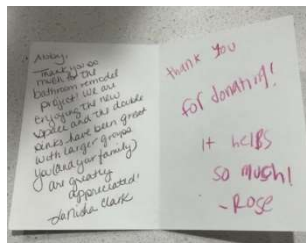 Abby,
Thank you so
much for the
bathroom remodel
project! We are
enjoying the new
space and the double
sinks have been great
with larger groups.
You (and your family)
are greatly
appreciated!
Clark
thank you
for donating!
It helps
so much!
-Rose